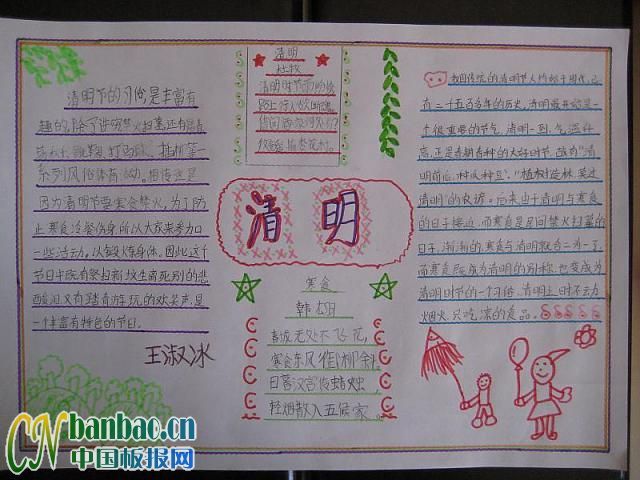 清明节的习俗是丰富有
趣的,除了讲究禁火扫墓,还有踏青
荡秋千、蹴鞠、打马球、插柳等一
系列风俗体育活动。相传这是
因为清明节要寒食禁火,为了防
止寒食冷餐伤身,所以大家来参加
一些活动,以锻炼身体。因此,这个
节日中既有祭扫新坟生离死别的悲
酸泪,又有踏青游玩的欢笑声,是
一个丰富有特色的节日。
王淑冰
清明
杜牧
清明时节雨纷纷
路上行人欲断魂
借问酒家何处有
牧童遥指杏花村
清明
寒食
韩翃
春城无处不飞花,
寒食东风御柳斜,
日暮汉宫传蜡烛,
轻烟散入五侯家
我国传统的清明节大约始于周代,已
有二千五百多年的历史,清明最开始是一
个很重要的节气,清明一到,气温升
高,正是春耕春种的大好时节,故有“清
明前后,种瓜种豆”。“植树造林,莫过
清明”的农谚。后来由于清明与寒食
的日子接近,而寒食是民间禁火扫墓的
日子,渐渐的,寒食与清明就合二为一了,
而寒食既成为清明的别称,也变成为
清明时节的一个习俗,清明之日不动
烟火,只吃凉的食品。
CNbanbao.cn
中国板报网